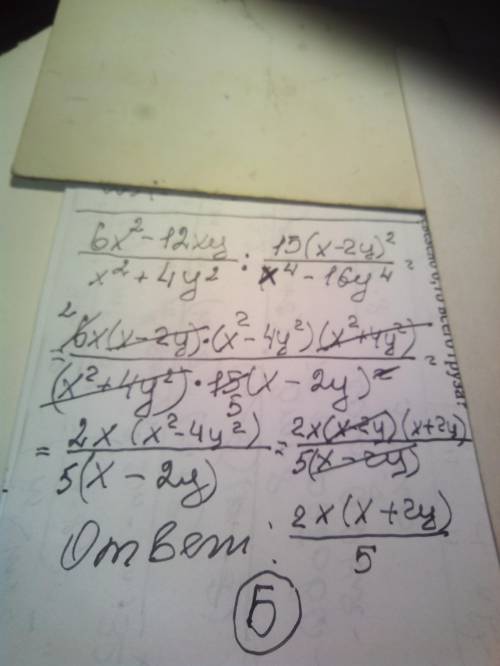 (6x² - 12xy)/(x² + 4y²) : (15(x - 2y)²)/(x⁴ - 16y⁴) =
= (6x(x - 2y) · (x² - 4y²)(x² + 4y²))/((x² + 4y²) · 15(x - 2y)²) =
= (2x (x² - 4y²))/(5(x - 2y)) = (2x(x - 2y)(x + 2y))/(5(x - 2y))
Ответ: (2x(x + 2y))/5
Б